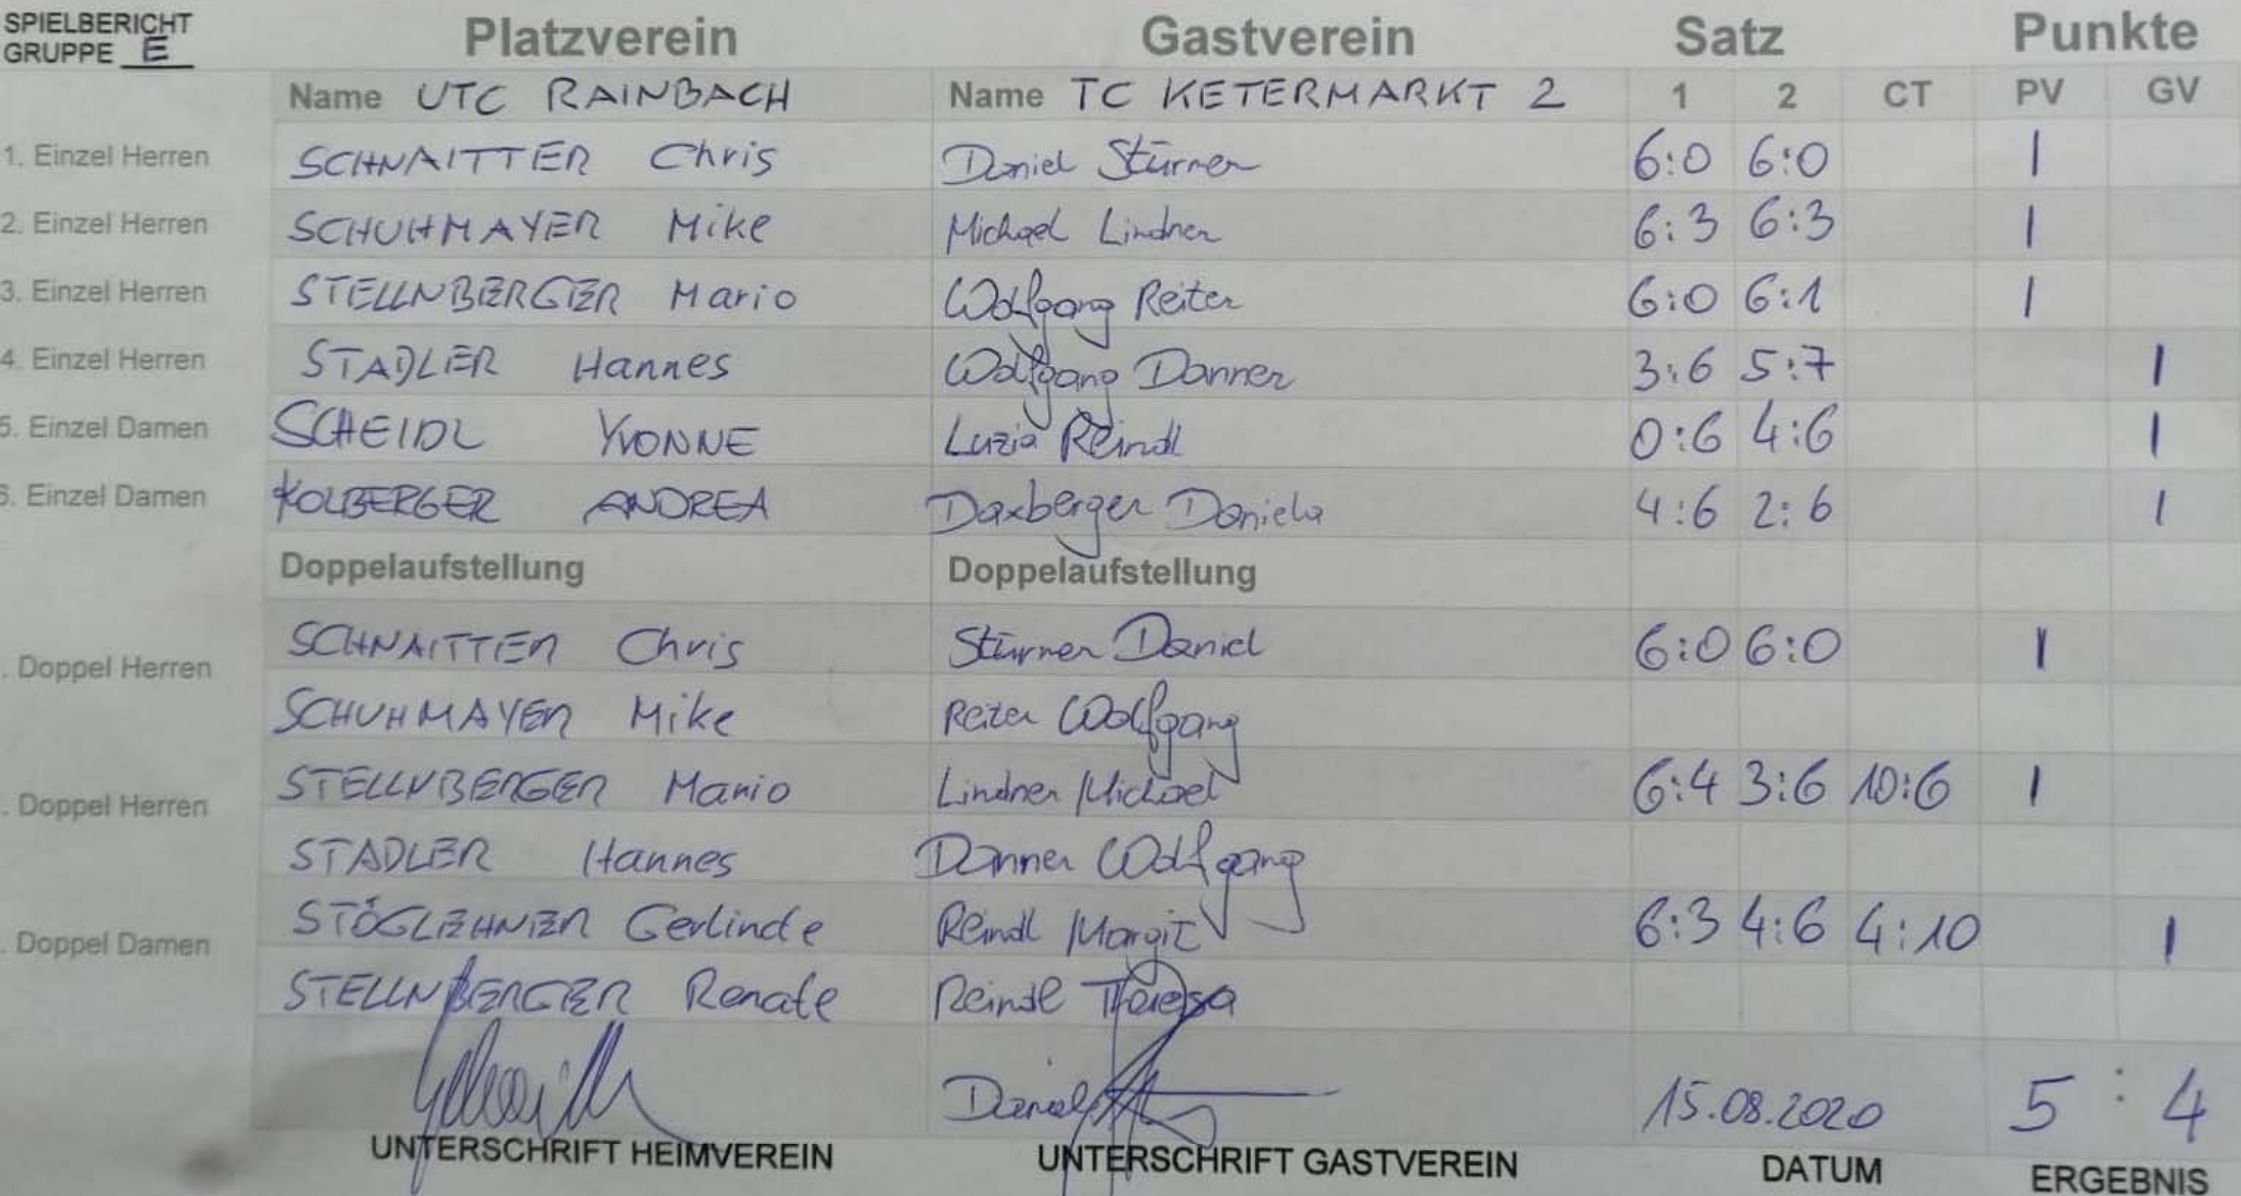 SPIELBERICHT
GRUPPE E
Platzverein Gastverein Satz Punkte
Name UTC RAINBACH Name TC KETERMARKT 2 1 2 CT PV GV
1. Einzel Herren SCHNAITTER Chris Daniel Stürner 6:0 6:0 1
2. Einzel Herren SCHUHMAYER Mike Michael Lindner 6:3 6:3 1
3. Einzel Herren STELLNBERGER Mario Wolfgang Reiter 6:0 6:1 1
4. Einzel Herren STADLER Hannes Wolfgang Danner 3:6 5:7 1
5. Einzel Damen SCHEIDL YVONNE Luzia Reindl 0:6 4:6 1
6. Einzel Damen KOLBERGER ANDREA Daxberger Daniela 4:6 2:6 1
Doppelaufstellung Doppelaufstellung
. Doppel Herren SCHNAITTER Chris Stürner Daniel 6:0 6:0 1
SCHUHMAYER Mike Reiter Wolfgang
. Doppel Herren STELLNBERGER Mario Lindner Michael 6:4 3:6 10:6 1
STADLER Hannes Danner Wolfgang
. Doppel Damen STÖGLEHNER Gerlinde Reindl Margit 6:3 4:6 4:10 1
STELLNBERGER Renate Reindl Theresa
Daniel 15.08.2020 5 : 4
UNTERSCHRIFT HEIMVEREIN UNTERSCHRIFT GASTVEREIN DATUM ERGEBNIS